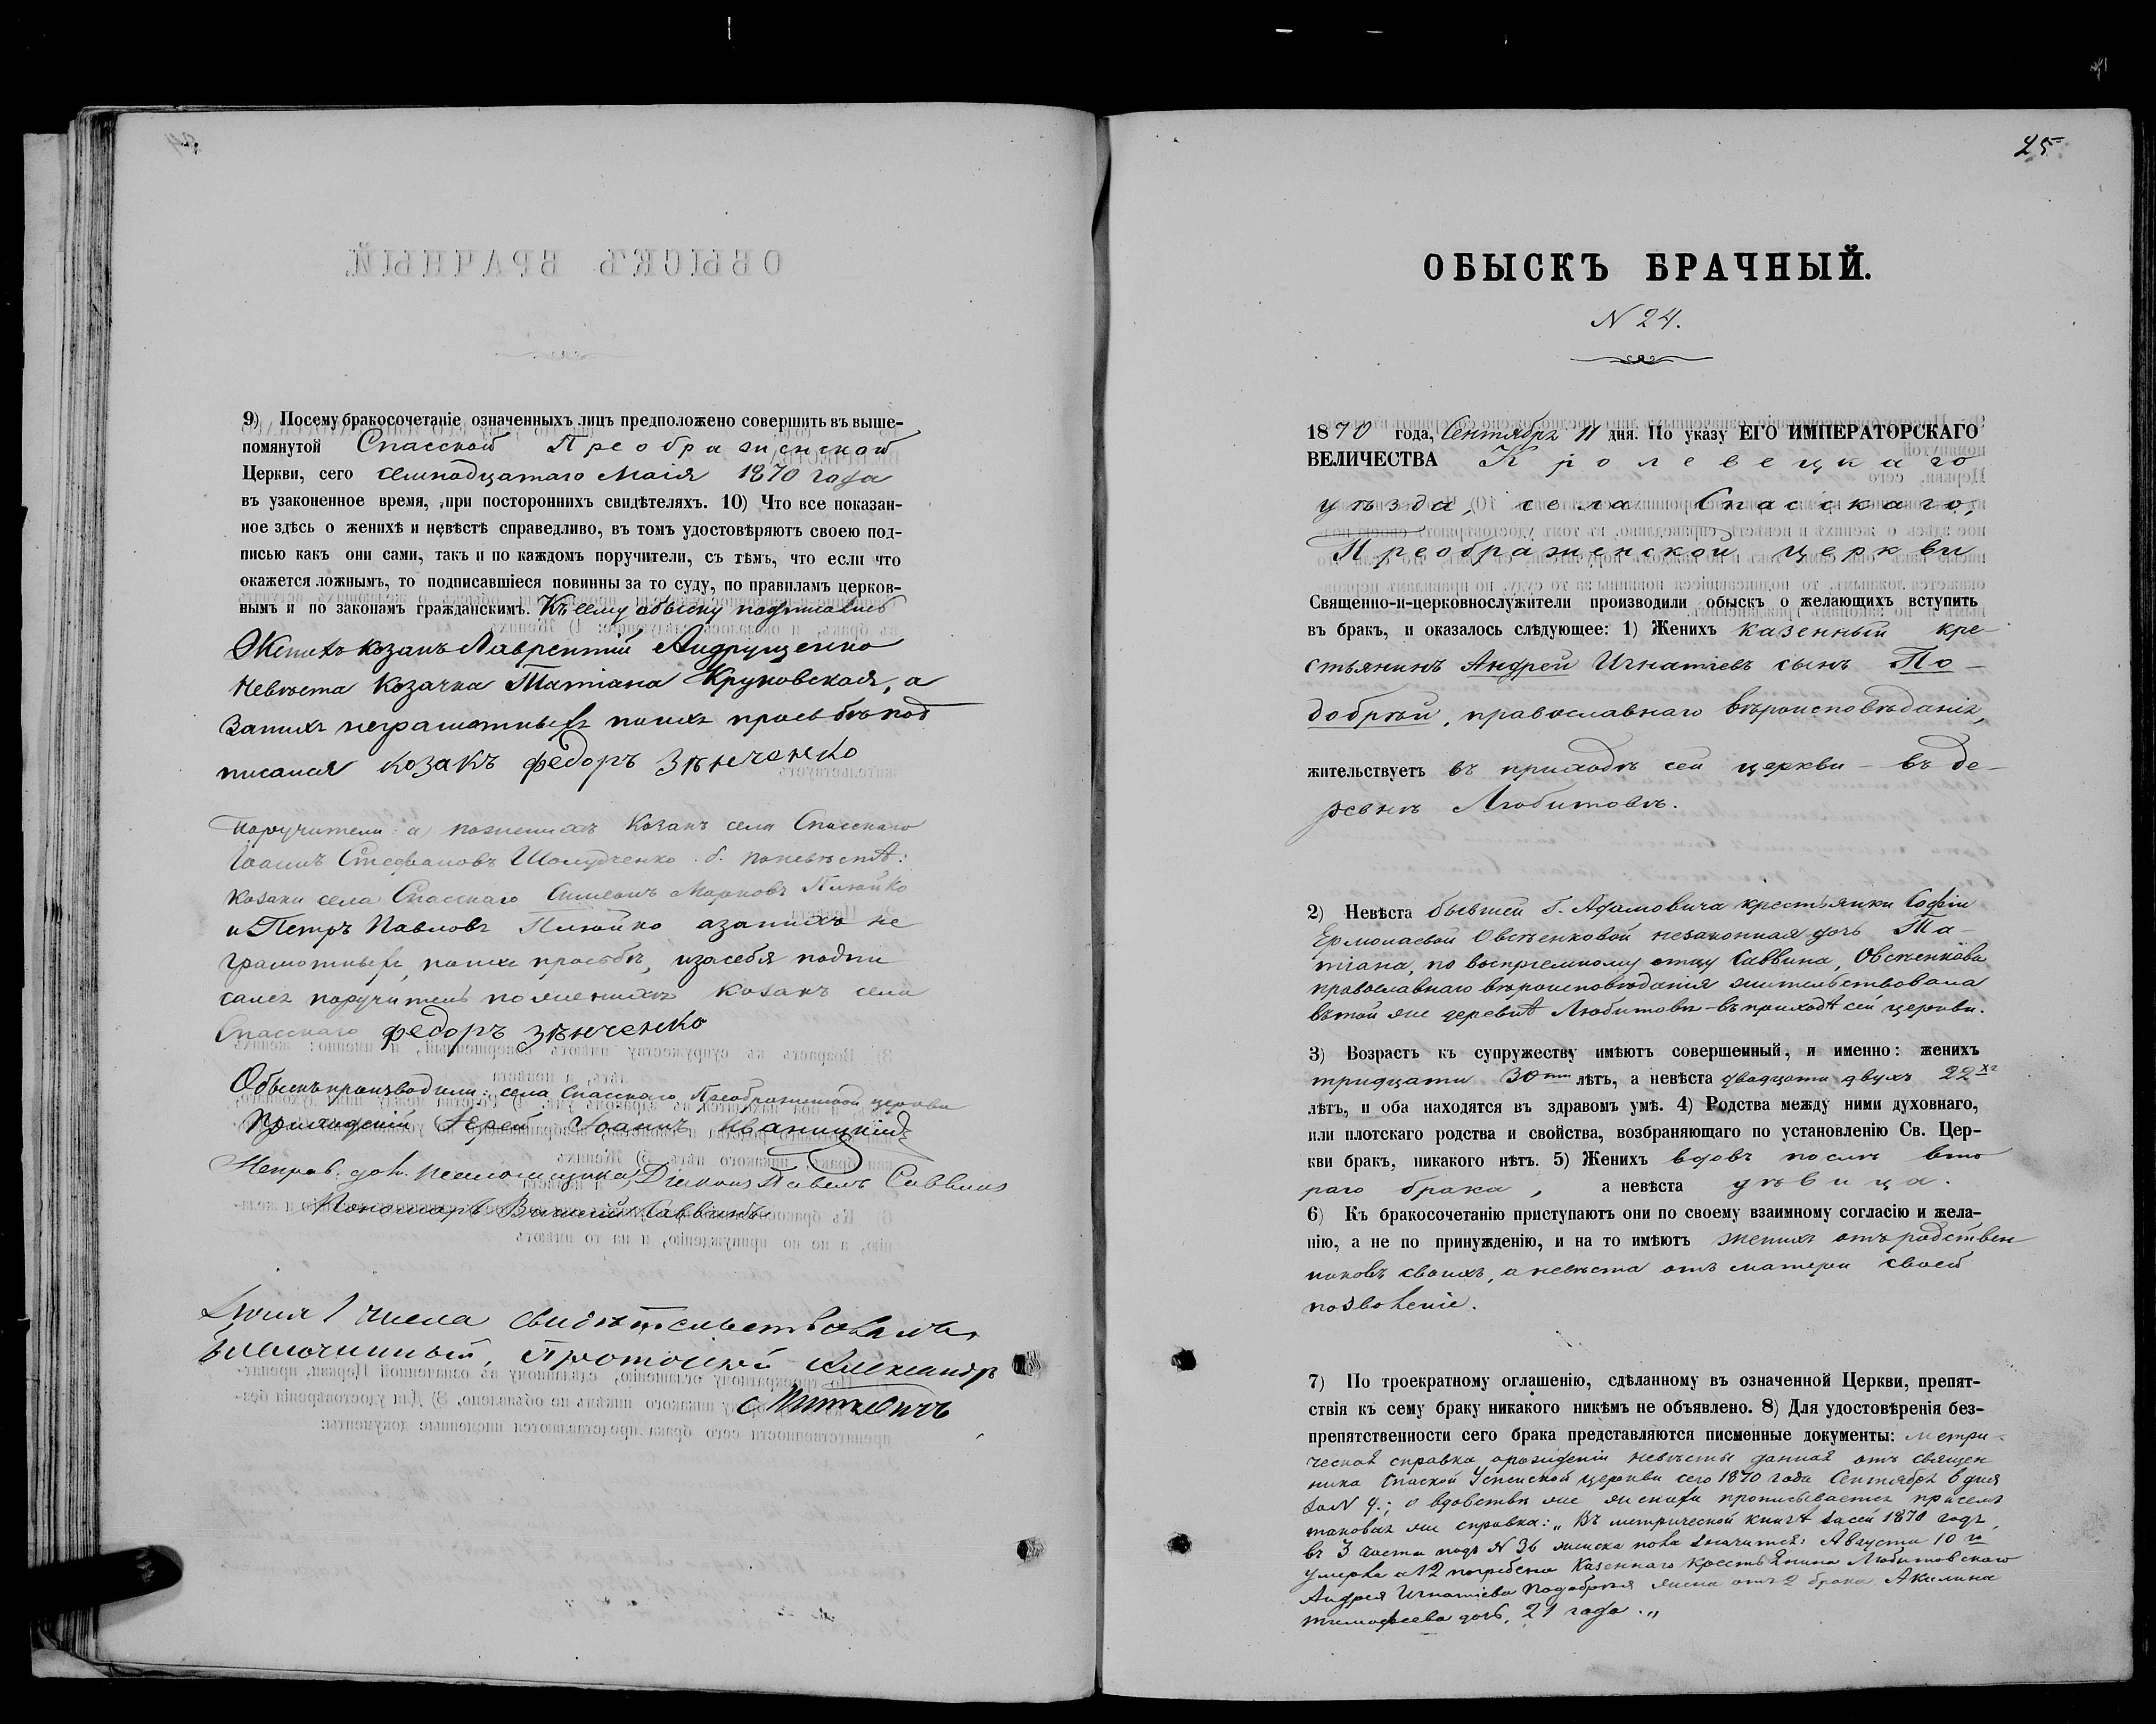 9) Посему бракосочетаніе означенныхъ лицъ предположено совершить въ выше-
помянутой Спасской Преображенской
Церкви, сего семнадцатаго Маія 1870 года
въ узаконенное время, при постороннихъ свидѣтеляхъ. 10) Что все показан-
ное здѣсь о женихѣ и невѣстѣ справедливо, въ томъ удостовѣряютъ своею под-
писью какъ они сами, такъ и по каждомъ поручители, съ тѣмъ, что если что
окажется ложнымъ, то подписавшіеся повинны за то суду, по правиламъ церков-
нымъ и по законамъ гражданскимъ. Къ сему обыску подписались
Женихъ козакъ Лаврентій Андрущенко
Невѣста Козачка Татіана Круковская, а
за нихъ неграмотныхъ по ихъ прозьбѣ под
писался козакъ Федоръ Зѣнченко
Поручители: а) по женихѣ Козакъ села Спасскаго
Іоаннъ Стефановъ Шолудченко. б. по невѣстѣ:
козаки села Спасскаго Симеонъ Марковъ Плюйко
и Петръ Павловъ Плюйко а за нихъ не
грамотныхъ, по ихъ прозьбѣ, и за себя подпи
салъ поручитель по женихѣ козакъ села
Спасскаго Федоръ Зѣнченко
Обыскъ производили: села Спасскаго Преображенской церкви
Приходскій Іерей Іоаннъ Иваницкій
Исправ. дол. псаломщика, Діаконъ Павелъ Саввинъ
Пономарь Саввинъ
Іюня 1 числа свидѣтельствовалъ
Благочинный, Протоіерей Александръ
25
ОБЫСКЪ БРАЧНЫЙ.
N 24.
1870 года, Сентября 11 дня. По указу ЕГО ИМПЕРАТОРСКАГО
ВЕЛИЧЕСТВА Кролевецкаго
уѣзда, села Спасскаго,
Преображенской церкви
Священно-и-церковнослужители производили обыскъ о желающихъ вступить
въ бракъ, и оказалось слѣдующее: 1) Женихъ казенный кре-
стьянинъ Андрей Игнатіевъ сынъ По-
добрѣй, православнаго вѣроисповѣданія,
жительствуетъ въ приходѣ сей церкви – въ де-
ревнѣ Любитовѣ.
2) Невѣста бывшей г. Адамовича крестьянки Софіи
Ермолаевой Овсѣенковой незаконная дочь Та-
тіана, по воспріемному отцу Саввина, Овсѣенкова
православнаго вѣроисповѣданія жительствовала
въ той же деревнѣ Любитовѣ – въ приходѣ сей церкви.
3) Возрастъ къ супружеству имѣютъ совершенный, и именно: женихъ
тридцати 30ти лѣтъ, а невѣста двадцати двухъ 22хъ
лѣтъ, и оба находятся въ здравомъ умѣ. 4) Родства между ними духовнаго,
или плотскаго родства и свойства, возбраняющаго по установленію Св. Цер-
кви бракъ, никакого нѣтъ. 5) Женихъ вдовъ послѣ вто
раго брака, а невѣста дѣвица.
6) Къ бракосочетанію приступаютъ они по своему взаимному согласію и жела-
нію, а не по принужденію, и на то имѣютъ женихъ отъ родствен
никовъ своихъ, а невѣста отъ матери своей
позволеніе.
7) По троекратному оглашенію, сдѣланному въ означенной Церкви, препят-
ствія къ сему браку никакого никѣмъ не объявлено. 8) Для удостовѣренія без-
препятственности сего брака представляются писменные документы: метри-
ческая справка о рожденіи невѣсты данная отъ священ
ника Спаской Успенской церкви сего 1870 года Сентября 6 дня
за N 4.; о вдовствѣ же жениха прописывается при семъ
таковая же справка: „Въ метрической книгѣ за сей 1870 годъ,
въ 3 части подъ N 36 женска пола значится: Августа 10го
умерла а 12 погребена Казеннаго крестьянина Любитовскаго
Андрея Игнатіева Подобрѣя жена отъ 2 брака Акилина
Тимофеева дочь, 21 года.„